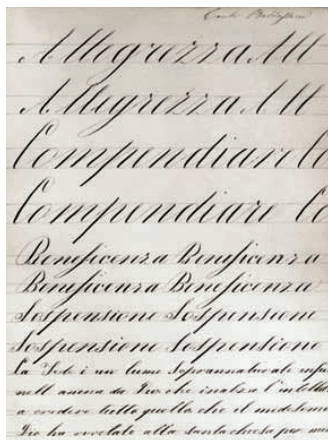 Allegrezza All
Allegrezza All
Compendiare Co
Compendiare Co
Beneficenza Beneficenza
Beneficenza Beneficenza
Sospensione Sospensione
Sospensione Sospensione
La Fede è un lume soprannaturale infu
nell anima da Dio che inalza l'intellet
a credere tutto quello che il medesimo
Dio ha rivelato alla santa chiesa per